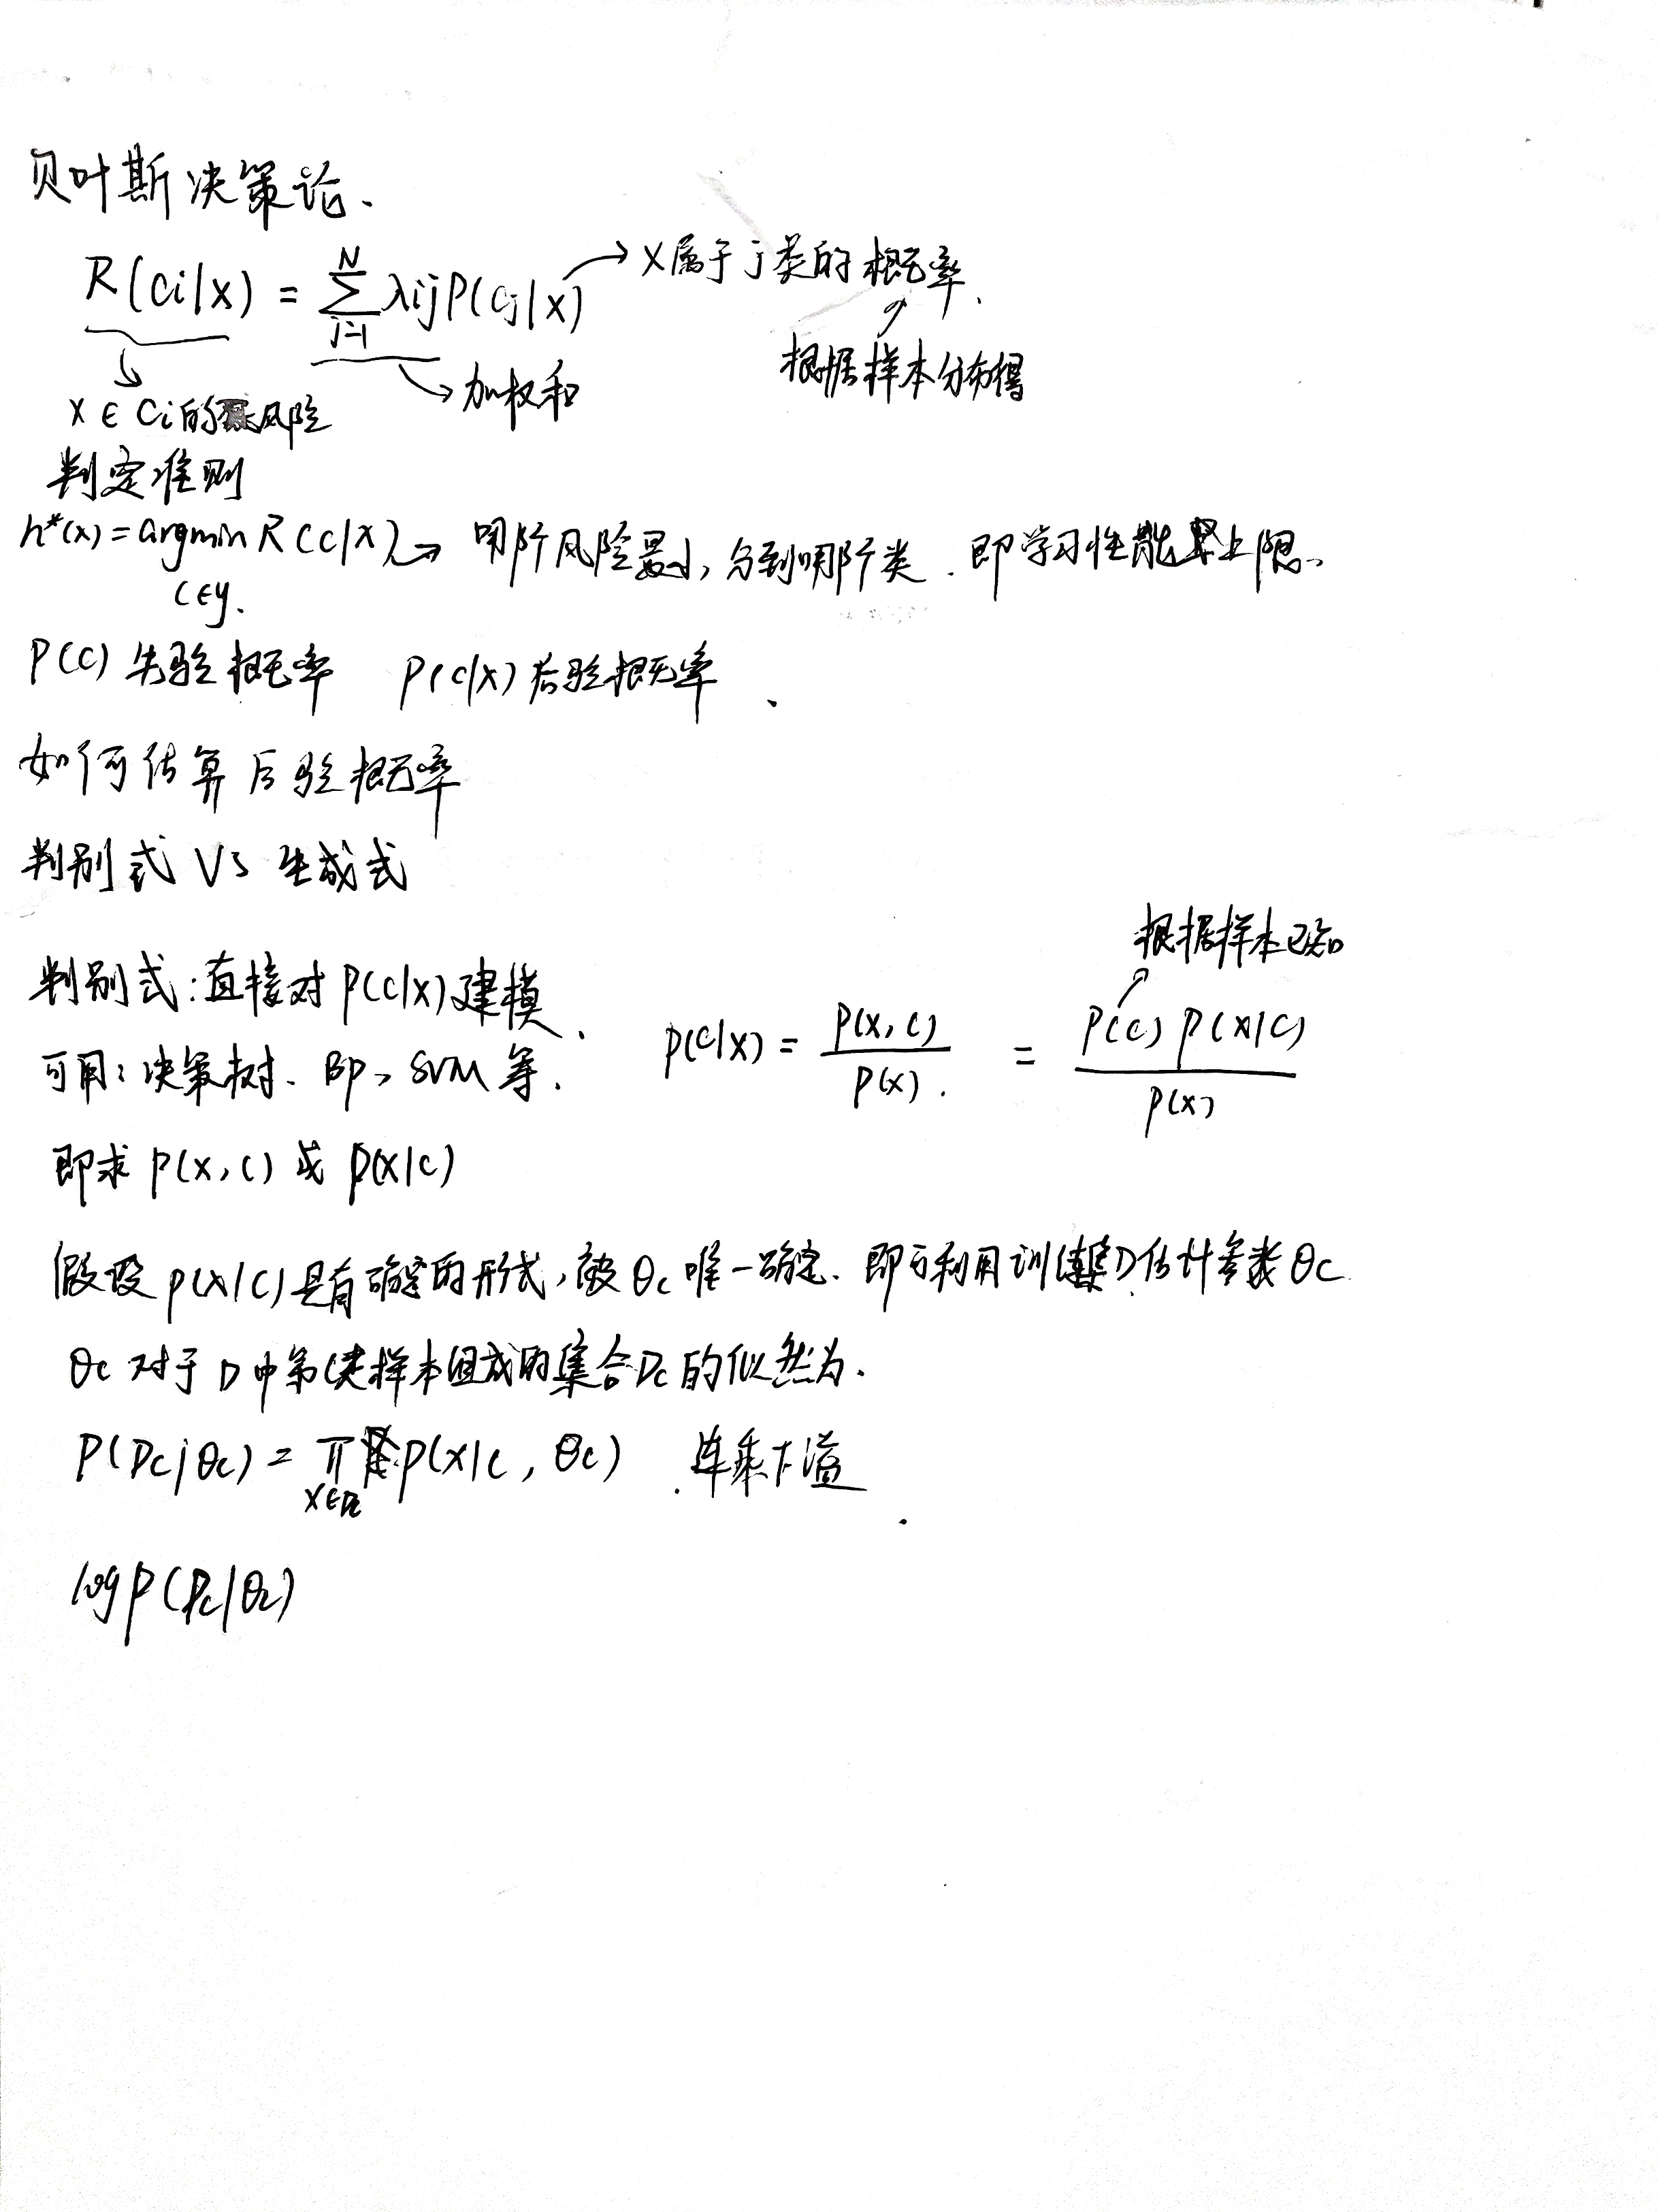 贝叶斯决策论、
R(Ci|x) = \sum_{j=1}^{N} λij P(Cj|x) → x属于j类的概率.
根据样本分布得
加权和
x ∈ Ci的风险
判定准则
h*(x) = argmin R(c|x) → 哪个风险最小, 分到哪个类. 即学习性能上限.
c∈y.
P(C) 先验概率 P(c|x) 后验概率
如何估算后验概率
判别式 VS 生成式
根据样本已知
判别式: 直接对P(c|x)建模.
P(c|x) = \frac{P(x,c)}{P(x)} = \frac{P(c) P(x|c)}{P(x)}
可用: 决策树、BP、SVM 等.
即求 P(x,c) 或 P(x|c)
假设 P(x|c) 是有确定的形式, 被 θc 唯一确定. 即可利用训练集D估计参数 θc
θc 对于 D 中第c类样本组成的集合Dc的似然为.
P(Dc|θc) = \prod_{x∈Dc} P(x|c, θc) . 连乘下溢
log P(Dc|θc)